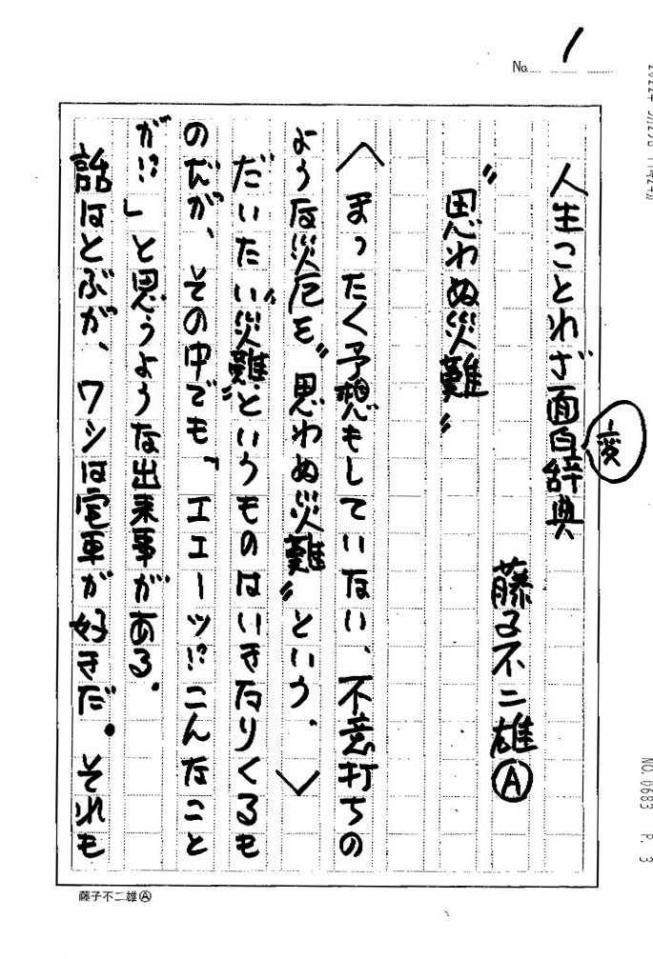 No. 1
人生ことわざ面白辞典
変
藤子不二雄Ⓐ
〝思わぬ災難〟
〈まったく予想もしていない、不意打ちの
ような災厄を〝思わぬ災難〟という。〉
だいたい〝災難〟というものはいきなりくるも
のだが、その中でも、エエーッ!?こんなこと
が!?」と思うような出来事がある。
話はとぶが、ワシは電車が好きだ。それも
藤子不二雄Ⓐ
NO. 0683 P. 3